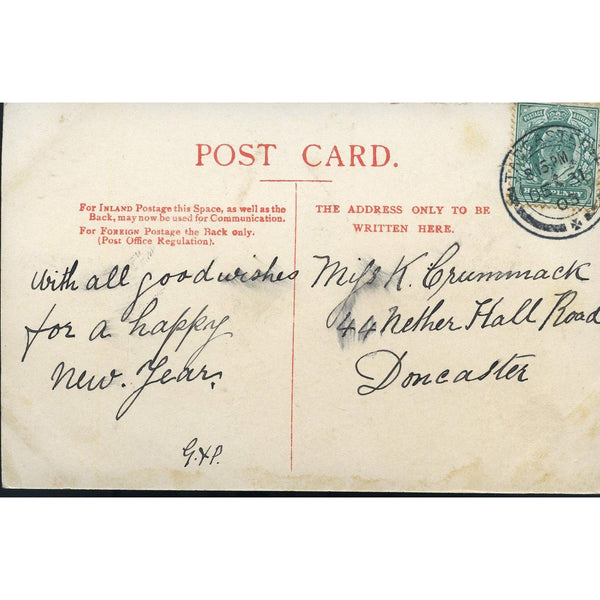 POST CARD.
For INLAND Postage this Space, as well as the
Back, may now be used for Communication.
For FOREIGN Postage the Back only.
(Post Office Regulation).
THE ADDRESS ONLY TO BE
WRITTEN HERE.
With all good wishes
for a happy
New. Year.
G.&P.
Miss K. Crummack
44 Nether Hall Road
Doncaster
POSTAGE
PM